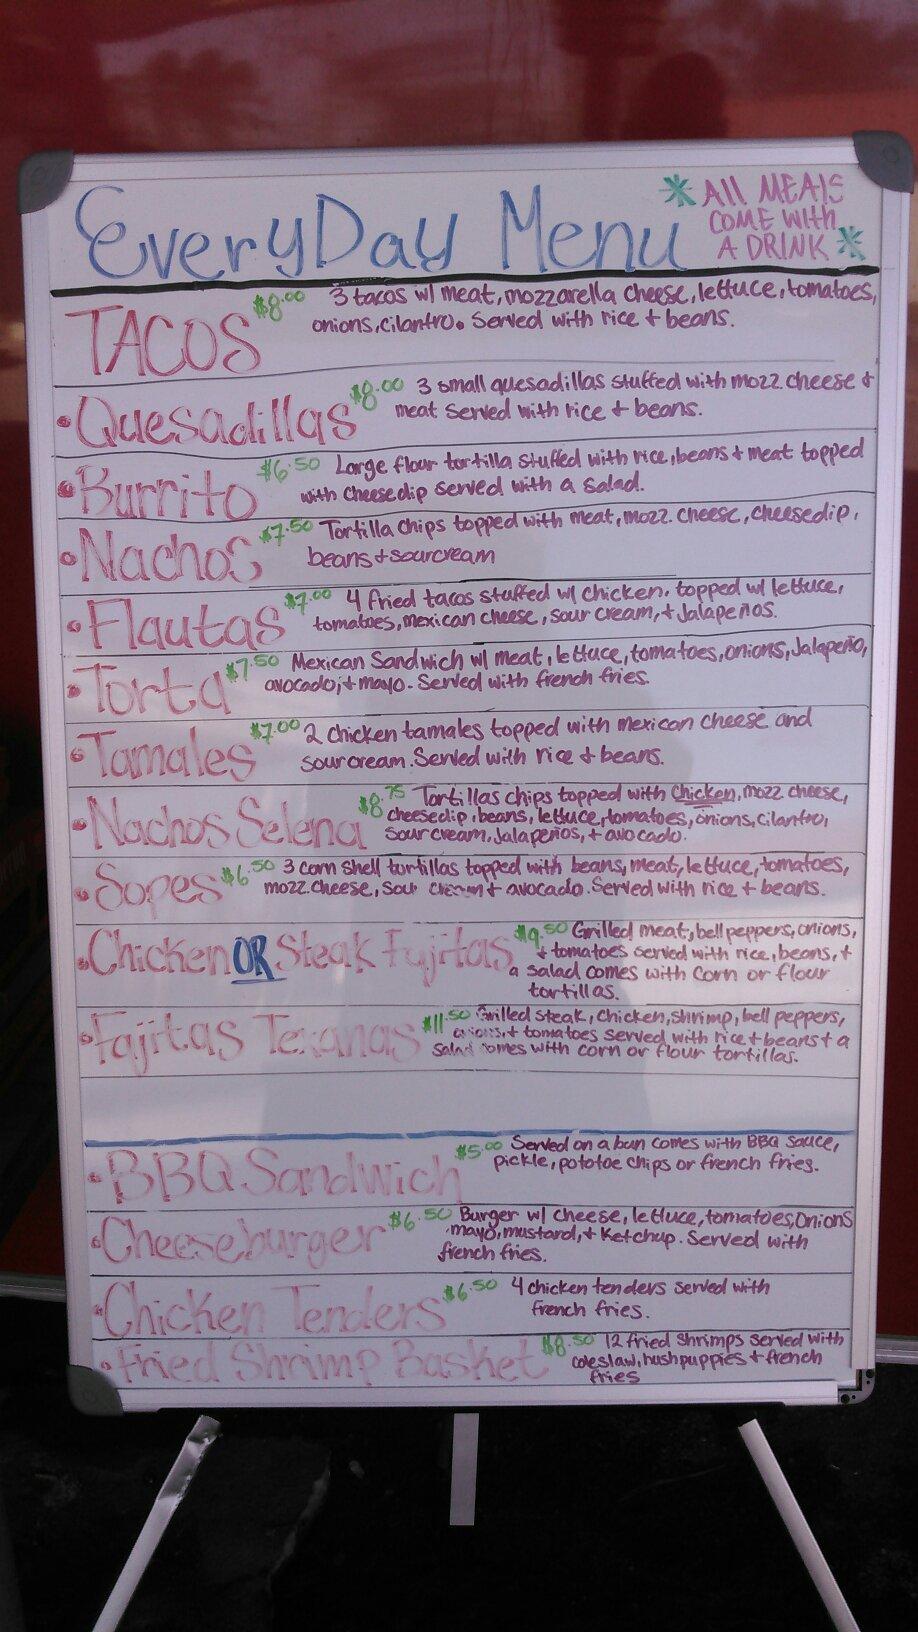 EveryDay Menu
* All MEAlS
COME WITH
A DRINK *
TACOS $8.00 3 tacos w/ meat, mozzarella cheese, lettuce, tomatoes,
onions, cilantro. Served with rice + beans.
• Quesadillas $8.00 3 small quesadillas stuffed with mozz. cheese +
meat served with rice + beans.
• Burrito $6.50 Large flour tortilla stuffed with rice, beans + meat topped
with cheesedip served with a salad.
• Nachos $7.50 Tortilla chips topped with meat, mozz. cheese, cheesedip,
beans + sourcream
• Flautas $7.00 4 fried tacos stuffed w/ chicken. topped w/ lettuce,
tomatoes, mexican cheese, sour cream, + Jalapeños.
• Torta $7.50 Mexican Sandwich w/ meat, lettuce, tomatoes, onions, Jalapeño,
avocado, + mayo. Served with french fries.
• Tamales $7.00 2 chicken tamales topped with mexican cheese and
sourcream. Served with rice + beans.
• Nachos Selena $8.75 Tortillas chips topped with Chicken, mozz cheese,
cheesedip, beans, lettuce, tomatoes, onions, cilantro,
sour cream, Jalapeños, + avocado.
• Sopes $6.50 3 corn shell tortillas topped with beans, meat, lettuce, tomatoes,
mozz. cheese, sour cream + avocado. Served with rice + beans.
• Chicken OR Steak Fajitas $9.50 Grilled meat, bell peppers, onions,
+ tomatoes served with rice, beans, +
a salad comes with corn or flour
tortillas.
• Fajitas Texanas $11.50 Grilled steak, chicken, shrimp, bell peppers,
onions, + tomatoes served with rice + beans + a
salad comes with corn or flour tortillas.
• BBQ Sandwich $5.00 Served on a bun comes with BBQ sauce,
pickle, pototoe chips or french fries.
• Cheeseburger $6.50 Burger w/ cheese, lettuce, tomatoes, onions
mayo, mustard, + Ketchup. Served with
french fries.
• Chicken Tenders $6.50 4 chicken tenders served with
french fries.
• Fried Shrimp Basket $8.50 12 fried shrimps served with
coleslaw, hushpuppies + french
fries